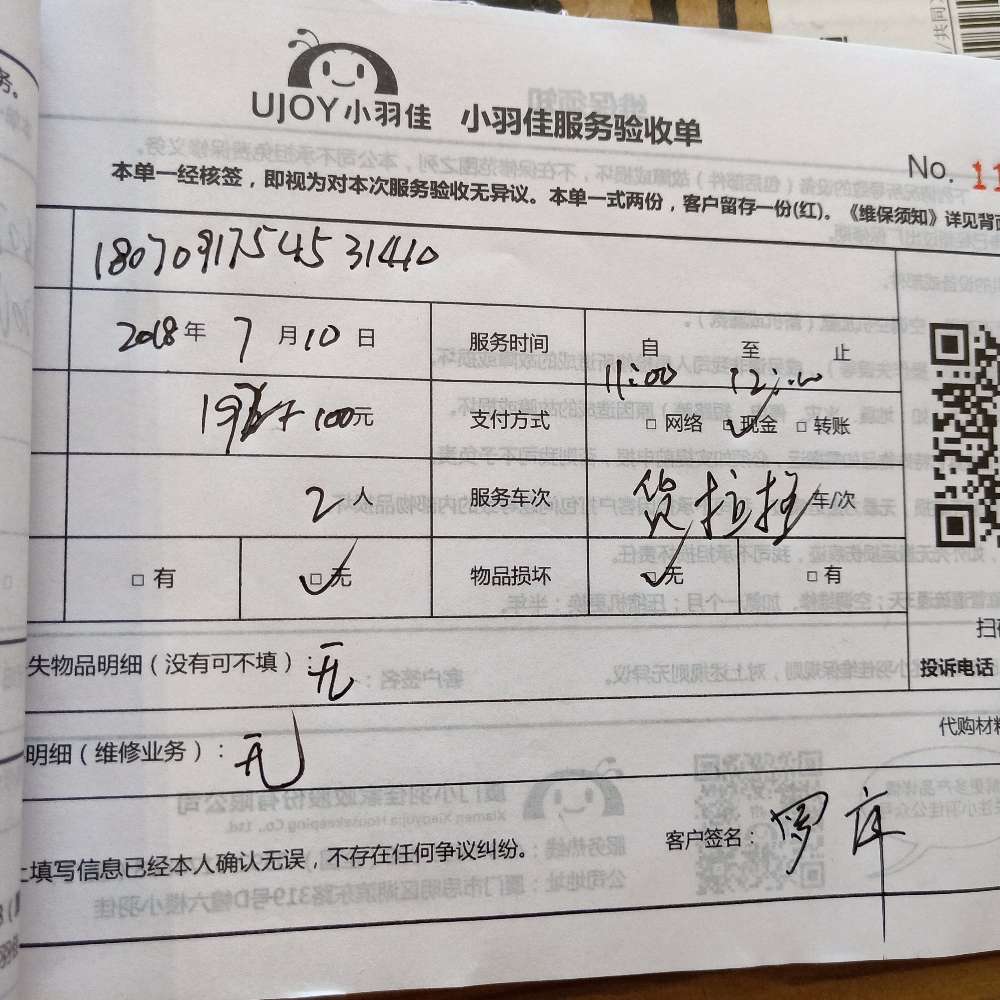 务。
UJOY小羽佳 小羽佳服务验收单
No. 11
本单一经核签，即视为对本次服务验收无异议。本单一式两份，客户留存一份(红)。《维保须知》详见背面
180709175453 1410
2018年 7月10日 服务时间 自 至 止
11:00 12:00
100元 支付方式 □ 网络 ☑ 现金 □ 转账
2人 服务车次 货拉拉 车/次
□ 有 ☑ 无 物品损坏 ☑ 无 □ 有
扫
失物品明细（没有可不填）：无
投诉电话
代购材料
明细（维修业务）：无
客户签名：
上填写信息已经本人确认无误，不存在任何争议纠纷。